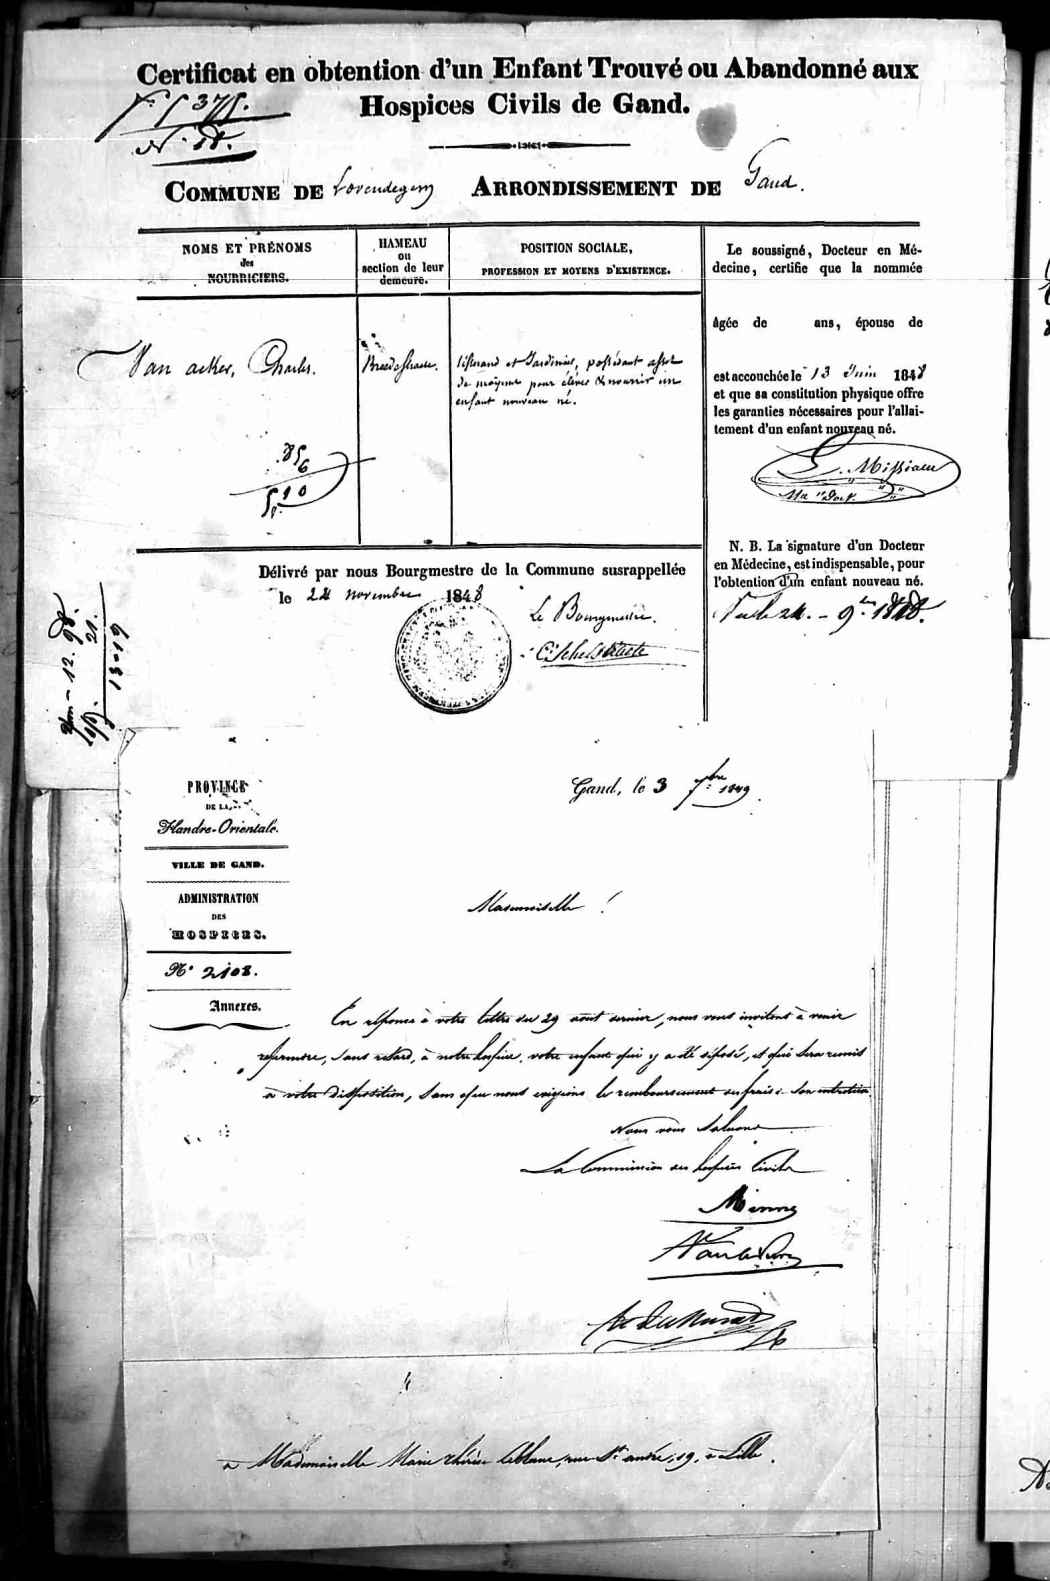 Certificat en obtention d'un Enfant Trouvé ou Abandonné aux
Hospices Civils de Gand.
COMMUNE DE Lovendegem ARRONDISSEMENT DE Gand.
NOMS ET PRÉNOMS
des
NOURRICIERS.
HAMEAU
ou
section de leur
demeure.
POSITION SOCIALE,
PROFESSION ET MOYENS D'EXISTENCE.
Van acker, Charles.
Breedestraete.
tisserand et Jardinier, possédant assez
de moyens pour élever & nourrir un
enfant nouveau né.
856
510
Le soussigné, Docteur en Mé-
decine, certifie que la nommée
âgée de ans, épouse de
est accouchée le 13 Juin 1848
et que sa constitution physique offre
les garanties nécessaires pour l'allai-
tement d'un enfant nouveau né.
N. B. La signature d'un Docteur
en Médecine, est indispensable, pour
l'obtention d'un enfant nouveau né.
24. - 9bre 1848.
Délivré par nous Bourgmestre de la Commune susrappellée
le 24 novembre 1848
Le Bourgmestre.
12. 98.
21.
13-19
PROVINCE
DE LA
Flandre-Orientale.
VILLE DE GAND.
ADMINISTRATION
DES
HOSPICES.
N° 2108.
Annexes.
Gand, le 3 7bre 1849
Mademoiselle !
En réponse à votre lettre du 29 aout dernier, nous vous invitons à venir
reprendre, sans retard, à notre hospice, votre enfant qui y a été déposé, et qui sera remis
à votre disposition, sans que nous exigions le remboursement des frais de son entretien.
Nous vous saluons
La Commission des hospices Civils
à Mademoiselle Marie thérèse leblanc, rue St andré, 19, à Lille.